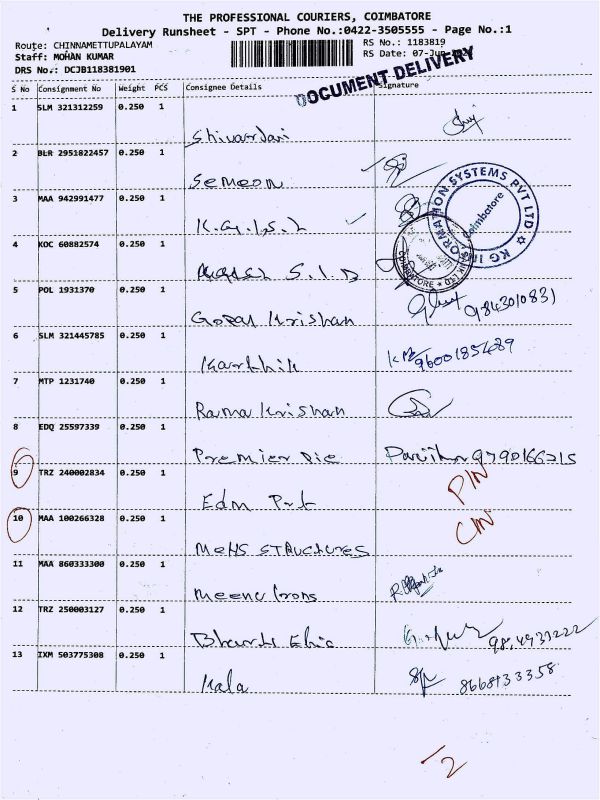 THE PROFESSIONAL COURIERS, COIMBATORE
Delivery Runsheet - SPT - Phone No.:0422-3505555 - Page No.:1
Route: CHINNAMETTUPALAYAM RS No.: 1183819
Staff: MOHAN KUMAR RS Date: 07-Jun
DRS No.: DCJB118381901
DOCUMENT DELIVERY
S No Consignment No Weight PCS Consignee Details Signature
1 SLM 321312259 0.250 1
2 BLR 2951822457 0.250 1
Semeon
3 MAA 942991477 0.250 1
K.G.I.S.L
KG INFORMATION SYSTEMS PVT LTD
Coimbatore
4 KOC 60882574 0.250 1
S.I.B
COIMBATORE
5 POL 1931370 0.250 1
Gopal Krishan 9843010831
6 SLM 321445785 0.250 1
Karthik 9600185489
7 MTP 1231740 0.250 1
Rama Krishan
8 EDQ 25597339 0.250 1
Premier Die 9790166215
9 TRZ 240002834 0.250 1
Edm Prt PIN
10 MAA 100266328 0.250 1
STRUCTURES
11 MAA 860333300 0.250 1
Meenu Irons
12 TRZ 250003127 0.250 1
13 IXM 503775308 0.250 1
Kala 8668133358
2